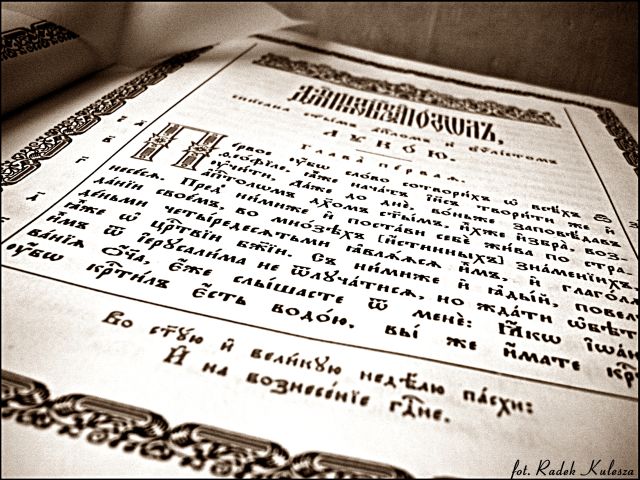 списана ст҃ы́мъ а҆пⷭ҇ломъ и҆ є҆ѵⷢ҇лі́стомъ
ЛꙊКО́Ю.
ГЛАВА̀ ПЕРВАЯ.
Пе́рвое ᲂу҆́бѡ сло́во сотвори́хъ ѡ҆ всѣ́хъ, ѽ
ѳео́філе, ꙗ҆̀же нача́тъ і҆и҃съ твори́ти же и҆
ᲂу҆чи́ти, да́же до днѐ, во́ньже заповѣ́давъ
а҆пⷭ҇лѡмъ дх҃омъ ст҃ы́мъ, и҆̀хже и҆збра̀, воз-
несе́сѧ. Пред̾ ни́миже и҆ поста́ви себѐ жи́ва по стра-
да́нїи свое́мъ, во мно́зѣхъ [и҆́стинныхъ] зна́менїихъ,
де́ньми четы́редесѧтьми ꙗ҆влѧ́ѧсѧ и҆̀мъ, и҆ глаго́лѧ
ꙗ҆̀же ѡ҆ црⷭ҇твїи бж҃їи. Съ ни́миже и҆ ꙗ҆ды́й, повел
и҆̀мъ ѿ і҆ерⷭ҇али́ма не ѿлуча́тисѧ, но жда́ти ѡ҆бѣт
ва́нїѧ ѻ҆́ч҃а, є҆́же слы́шасте ѿ менє̀: Ꙗ҆́кѡ і҆ѡа́
ᲂу҆́бѡ крⷭ҇ти́лъ є҆́сть водо́ю, вы́ же и҆́мате крⷭ҇т
Во ст҃ꙋ́ю и҆ вели́кꙋю недѣ́лю па́схи:
И҆ на вознесе́нїе гдⷭ҇не.
fot. Radek Kulesza